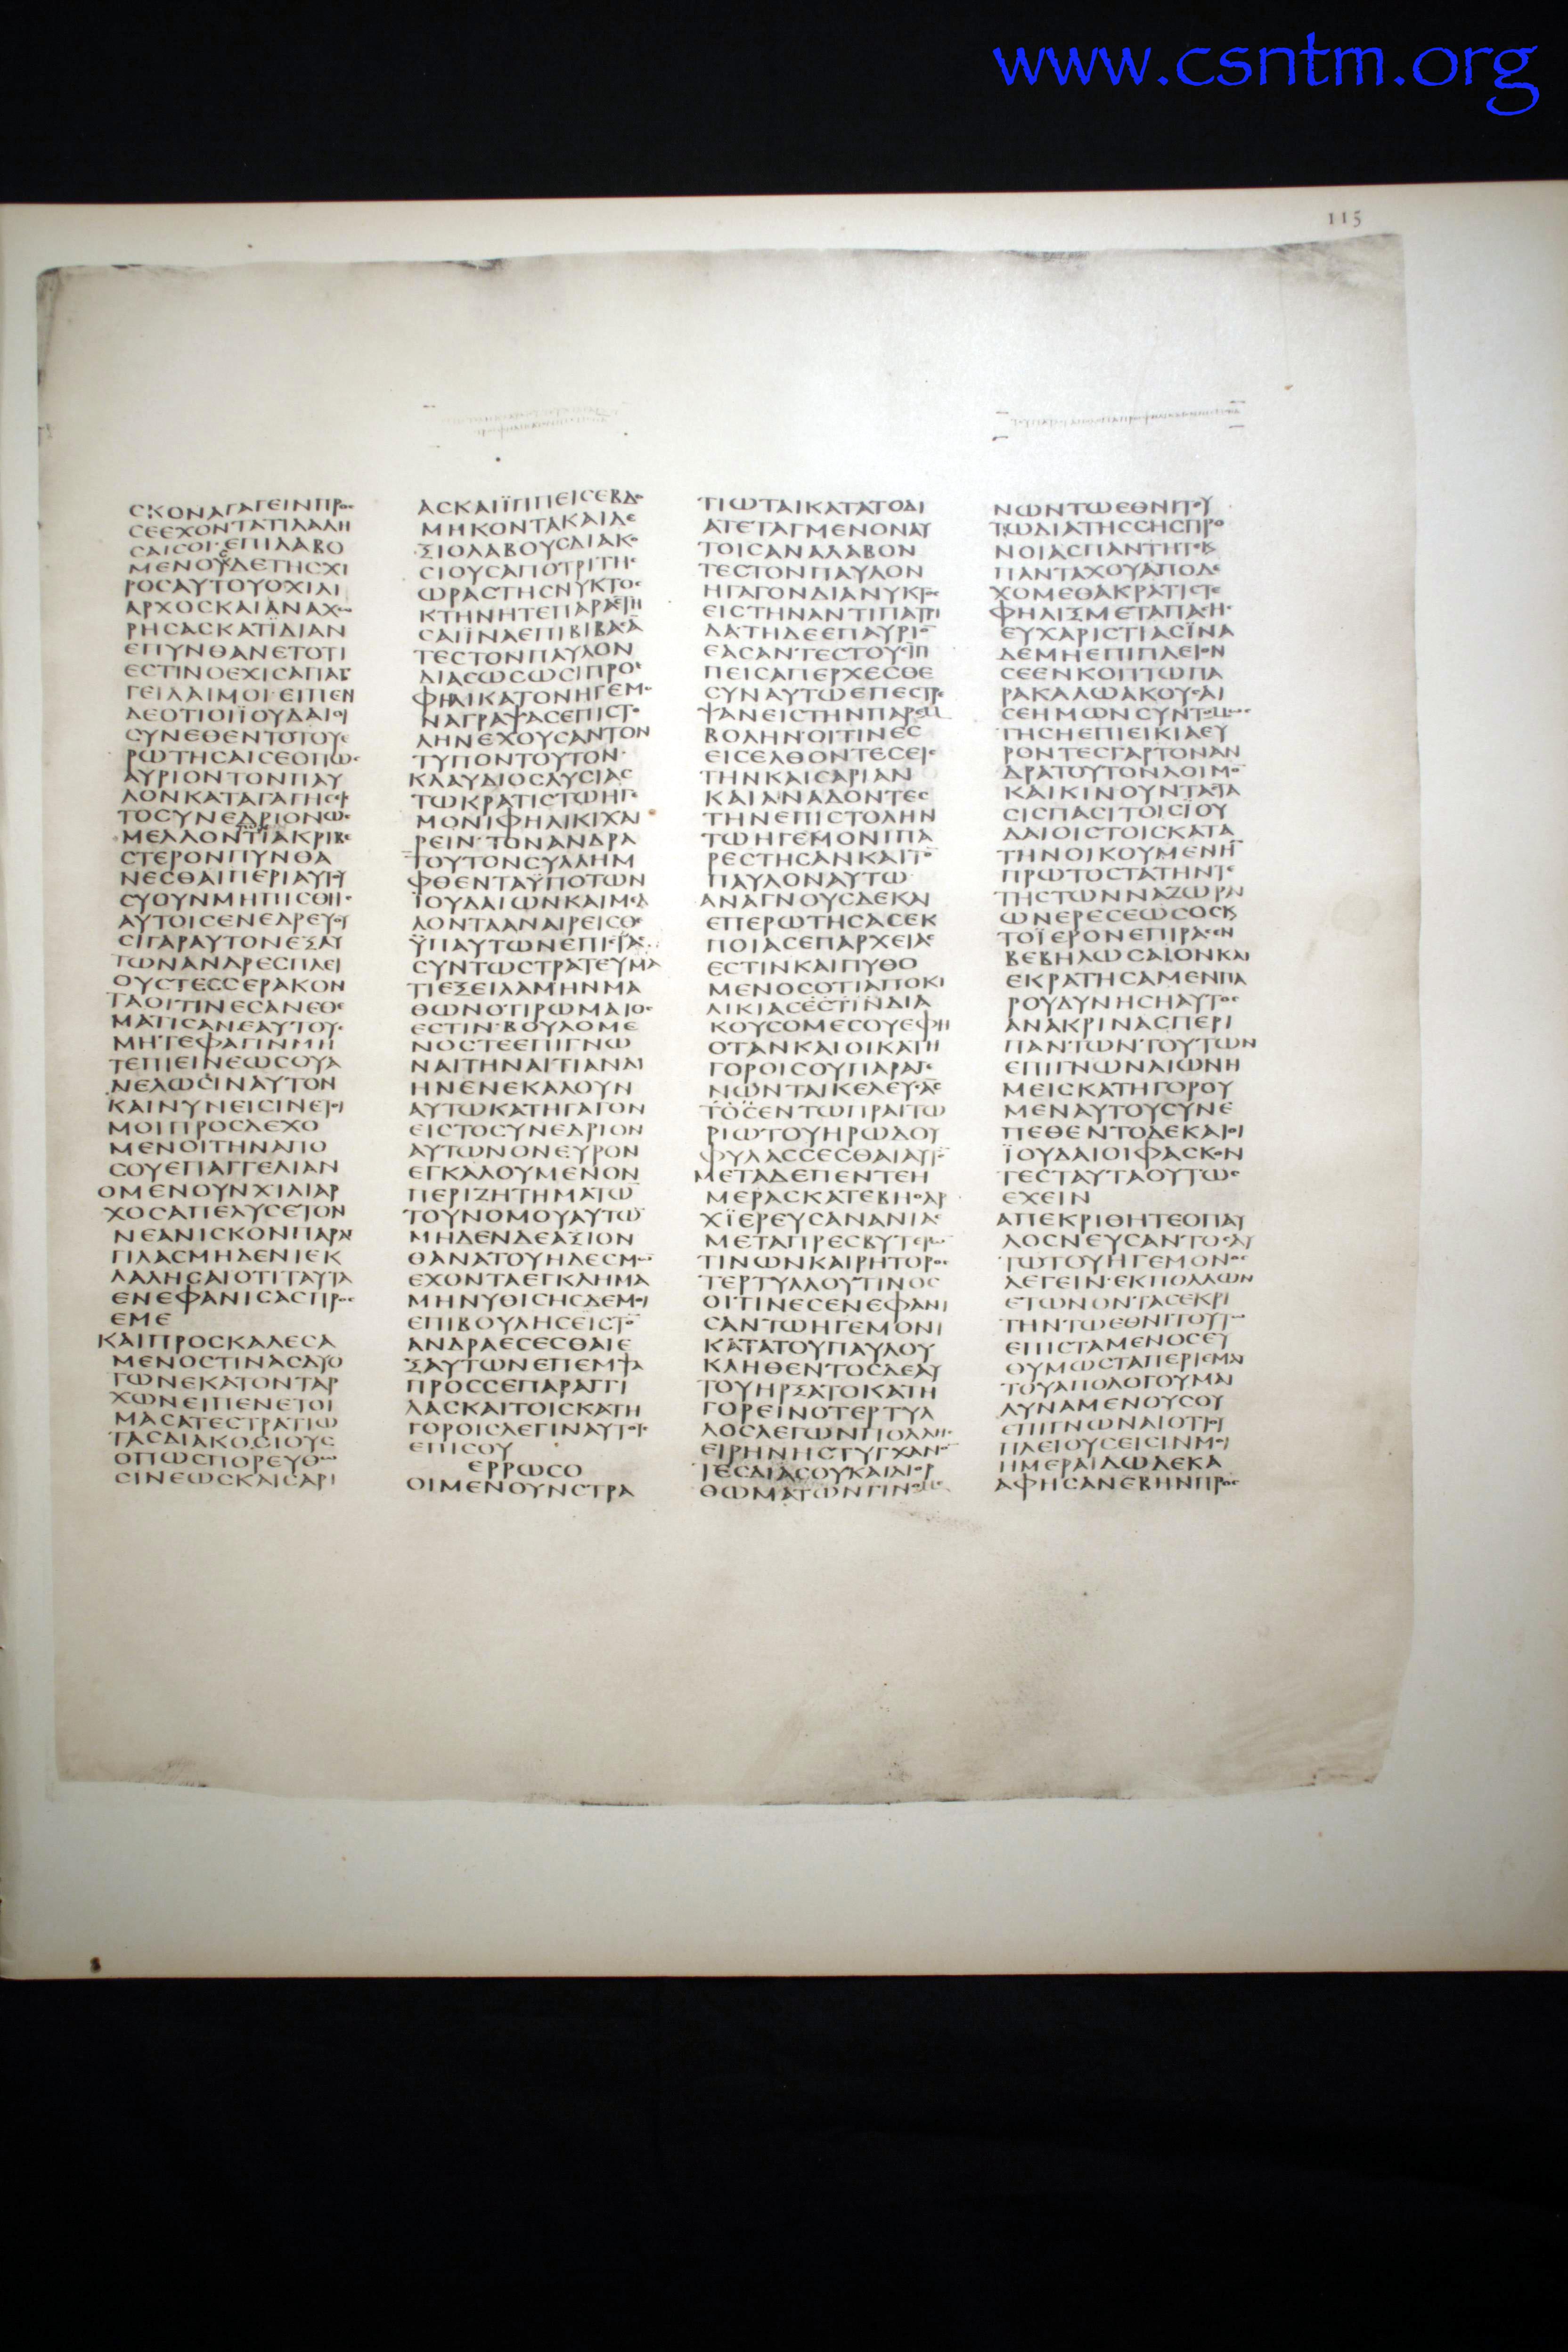 www.csntm.org
115
ϹΚΟΝΑΓΑΓΕΙΝΠΡΟϹ
ϹΕΕΧΟΝΤΑΤΙΛΑΛΗ
ϹΑΙϹΟΙ·ΕΠΙΛΑΒΟ
ΜΕΝΟΥΔΕΤΗϹΧΙ
ΡΟϹΑΥΤΟΥΟΧΙΛΙ
ΑΡΧΟϹΚΑΙΑΝΑΧΩ
ΡΗϹΑϹΚΑΤΪΔΙΑΝ
ΕΠΥΝΘΑΝΕΤΟΤΙ
ΕϹΤΙΝΟΕΧΙϹΑΠΑΓ
ΓΕΙΛΑΙΜΟΙ·ΕΙΠΕΝ
ΔΕΟΤΙΟΙΪΟΥΔΑΙΟΙ
ϹΥΝΕΘΕΝΤΟΤΟΥΕ
ΡΩΤΗϹΑΙϹΕΟΠΩϹ
ΑΥΡΙΟΝΤΟΝΠΑΥ
ΛΟΝΚΑΤΑΓΑΓΗϹΕΙϹ
ΤΟϹΥΝΕΔΡΙΟΝΩϹ
ΜΕΛΛΟΝΤΙΑΚΡΙΒΕ
ϹΤΕΡΟΝΠΥΝΘΑ
ΝΕϹΘΑΙΠΕΡΙΑΥΤΟΥ
ϹΥΟΥΝΜΗΠΙϹΘΗϹ
ΑΥΤΟΙϹΕΝΕΔΡΕΥΟΥ
ϹΙΓΑΡΑΥΤΟΝΕΞΑΥ
ΤΩΝΑΝΔΡΕϹΠΛΕΙ
ΟΥϹΤΕϹϹΕΡΑΚΟΝ
ΤΑΟΙΤΙΝΕϹΑΝΕΘΕ
ΜΑΤΙϹΑΝΕΑΥΤΟΥϹ
ΜΗΤΕΦΑΓΙΝΜΗ
ΤΕΠΙΕΙΝΕΩϹΟΥΑ
ΝΕΛΩϹΙΝΑΥΤΟΝ
ΚΑΙΝΥΝΕΙϹΙΝΕΤΟΙ
ΜΟΙΠΡΟϹΔΕΧΟ
ΜΕΝΟΙΤΗΝΑΠΟ
ϹΟΥΕΠΑΓΓΕΛΙΑΝ
ΟΜΕΝΟΥΝΧΙΛΙΑΡ
ΧΟϹΑΠΕΛΥϹΕΤΟΝ
ΝΕΑΝΙϹΚΟΝΠΑΡΑΓ
ΓΙΛΑϹΜΗΔΕΝΙΕΚ
ΛΑΛΗϹΑΙΟΤΙΤΑΥΤΑ
ΕΝΕΦΑΝΙϹΑϹΠΡΟϹ
ΕΜΕ
ΚΑΙΠΡΟϹΚΑΛΕϹΑ
ΜΕΝΟϹΤΙΝΑϹΔΥΟ
ΤΩΝΕΚΑΤΟΝΤΑΡ
ΧΩΝΕΙΠΕΝΕΤΟΙ
ΜΑϹΑΤΕϹΤΡΑΤΙΩ
ΤΑϹΔΙΑΚΟϹΙΟΥϹ
ΟΠΩϹΠΟΡΕΥΘΩ
ϹΙΝΕΩϹΚΑΙϹΑΡΙ
ΑϹΚΑΙΪΠΠΕΙϹΕΒΔΟ
ΜΗΚΟΝΤΑΚΑΙΔΕ
ΞΙΟΛΑΒΟΥϹΔΙΑΚΟ
ϹΙΟΥϹΑΠΟΤΡΙΤΗϹ
ΩΡΑϹΤΗϹΝΥΚΤΟϹ
ΚΤΗΝΗΤΕΠΑΡΑϹΤΗ
ϹΑΙΪΝΑΕΠΙΒΙΒΑϹΑ
ΤΕϹΤΟΝΠΑΥΛΟΝ
ΔΙΑϹΩϹΩϹΙΠΡΟϹ
ΦΗΛΙΚΑΤΟΝΗΓΕΜΟ
ΝΑΓΡΑΨΑϹΕΠΙϹΤΟ
ΛΗΝΕΧΟΥϹΑΝΤΟΝ
ΤΥΠΟΝΤΟΥΤΟΝ·
ΚΛΑΥΔΙΟϹΛΥϹΙΑϹ
ΤΩΚΡΑΤΙϹΤΩΗΓΕ
ΜΟΝΙΦΗΛΙΚΙΧΑΙ
ΡΕΙΝ·ΤΟΝΑΝΔΡΑ
ΤΟΥΤΟΝϹΥΛΛΗΜ
ΦΘΕΝΤΑΫΠΟΤΩΝ
ΪΟΥΔΑΙΩΝΚΑΙΜΕΛ
ΛΟΝΤΑΑΝΑΙΡΕΙϹΘΕ
ΫΠΑΥΤΩΝΕΠΙϹΤΑϹ
ϹΥΝΤΩϹΤΡΑΤΕΥΜΑ
ΤΙΕΞΕΙΛΑΜΗΝΜΑ
ΘΩΝΟΤΙΡΩΜΑΙΟϹ
ΕϹΤΙΝ·ΒΟΥΛΟΜΕ
ΝΟϹΤΕΕΠΙΓΝΩ
ΝΑΙΤΗΝΑΙΤΙΑΝΔΙ
ΗΝΕΝΕΚΑΛΟΥΝ
ΑΥΤΩΚΑΤΗΓΑΓΟΝ
ΕΙϹΤΟϹΥΝΕΔΡΙΟΝ
ΑΥΤΩΝΟΝΕΥΡΟΝ
ΕΓΚΑΛΟΥΜΕΝΟΝ
ΠΕΡΙΖΗΤΗΜΑΤΩ
ΤΟΥΝΟΜΟΥΑΥΤΩ
ΜΗΔΕΝΔΕΑΞΙΟΝ
ΘΑΝΑΤΟΥΗΔΕϹΜΩ
ΕΧΟΝΤΑΕΓΚΛΗΜΑ
ΜΗΝΥΘΙϹΗϹΔΕΜΟΙ
ΕΠΙΒΟΥΛΗϹΕΙϹΤΟ
ΑΝΔΡΑΕϹΕϹΘΑΙΕ
ΞΑΥΤΩΝΕΠΕΜΨΑ
ΠΡΟϹϹΕΠΑΡΑΓΓΙ
ΛΑϹΚΑΙΤΟΙϹΚΑΤΗ
ΓΟΡΟΙϹΛΕΓΙΝΑΥΤΟΥϹ
ΕΠΙϹΟΥ
ΕΡΡΩϹΟ
ΟΙΜΕΝΟΥΝϹΤΡΑ
ΤΙΩΤΑΙΚΑΤΑΤΟΔΙ
ΑΤΕΤΑΓΜΕΝΟΝΑΥ
ΤΟΙϹΑΝΑΛΑΒΟΝ
ΤΕϹΤΟΝΠΑΥΛΟΝ
ΗΓΑΓΟΝΔΙΑΝΥΚΤΟϹ
ΕΙϹΤΗΝΑΝΤΙΠΑΤΡΙ
ΔΑ·ΤΗΔΕΕΠΑΥΡΙΟ
ΕΑϹΑΝΤΕϹΤΟΥϹΙΠ
ΠΕΙϹΑΠΕΡΧΕϹΘΕ
ϹΥΝΑΥΤΩΕΠΕϹΤΡΕ
ΨΑΝΕΙϹΤΗΝΠΑΡΕΜ
ΒΟΛΗΝ·ΟΙΤΙΝΕϹ
ΕΙϹΕΛΘΟΝΤΕϹΕΙϹ
ΤΗΝΚΑΙϹΑΡΙΑΝ
ΚΑΙΑΝΑΔΟΝΤΕϹ
ΤΗΝΕΠΙϹΤΟΛΗΝ
ΤΩΗΓΕΜΟΝΙΠΑ
ΡΕϹΤΗϹΑΝΚΑΙΤΟ
ΠΑΥΛΟΝΑΥΤΩ
ΑΝΑΓΝΟΥϹΔΕΚΑΙ
ΕΠΕΡΩΤΗϹΑϹΕΚ
ΠΟΙΑϹΕΠΑΡΧΕΙΑϹ
ΕϹΤΙΝΚΑΙΠΥΘΟ
ΜΕΝΟϹΟΤΙΑΠΟΚΙ
ΛΙΚΙΑϹΕϹΤΙΝΔΙΑ
ΚΟΥϹΟΜΕϹΟΥΕΦΗ
ΟΤΑΝΚΑΙΟΙΚΑΤΗ
ΓΟΡΟΙϹΟΥΠΑΡΑΓΕ
ΝΩΝΤΑΙΚΕΛΕΥϹΑϹ
ΤΟϹΕΝΤΩΠΡΑΙΤΩ
ΡΙΩΤΟΥΗΡΩΔΟΥ
ΦΥΛΑϹϹΕϹΘΑΙΑΥΤΟ
ΜΕΤΑΔΕΠΕΝΤΕΗ
ΜΕΡΑϹΚΑΤΕΒΗΟΑΡ
ΧΪΕΡΕΥϹΑΝΑΝΙΑϹ
ΜΕΤΑΠΡΕϹΒΥΤΕΡΩ
ΤΙΝΩΝΚΑΙΡΗΤΟΡΟϹ
ΤΕΡΤΥΛΛΟΥΤΙΝΟϹ
ΟΙΤΙΝΕϹΕΝΕΦΑΝΙ
ϹΑΝΤΩΗΓΕΜΟΝΙ
ΚΑΤΑΤΟΥΠΑΥΛΟΥ
ΚΛΗΘΕΝΤΟϹΔΕΑΥ
ΤΟΥΗΡΞΑΤΟΚΑΤΗ
ΓΟΡΕΙΝΟΤΕΡΤΥΛ
ΛΟϹΛΕΓΩΝΠΟΛΛΗϹ
ΕΙΡΗΝΗϹΤΥΓΧΑΝΟ
ΤΕϹΔΙΑϹΟΥΚΑΙΔΙΟΡ
ΘΩΜΑΤΩΝΓΙΝΟΜΕ
ΝΩΝΤΩΕΘΝΙΤΟΥ
ΤΩΔΙΑΤΗϹϹΗϹΠΡΟ
ΝΟΙΑϹΠΑΝΤΗΤΕΚ
ΠΑΝΤΑΧΟΥΑΠΟΔΕ
ΧΟΜΕΘΑΚΡΑΤΙϹΤΕ
ΦΗΛΙΞΜΕΤΑΠΑϹΗϹ
ΕΥΧΑΡΙϹΤΙΑϹΪΝΑ
ΔΕΜΗΕΠΙΠΛΕΙΟΝ
ϹΕΕΝΚΟΠΤΩΠΑ
ΡΑΚΑΛΩΑΚΟΥϹΑΙ
ϹΕΗΜΩΝϹΥΝΤΟΜΩϹ
ΤΗϹΗΕΠΙΕΙΚΙΑΕΥ
ΡΟΝΤΕϹΓΑΡΤΟΝΑΝ
ΔΡΑΤΟΥΤΟΝΛΟΙΜΟ
ΚΑΙΚΙΝΟΥΝΤΑϹΤΑ
ϹΙϹΠΑϹΙΤΟΙϹΪΟΥ
ΔΑΙΟΙϹΤΟΙϹΚΑΤΑ
ΤΗΝΟΙΚΟΥΜΕΝΗ
ΠΡΩΤΟϹΤΑΤΗΝΤΕ
ΤΗϹΤΩΝΝΑΖΩΡΑΙ
ΩΝΕΡΕϹΕΩϹΟϹΚ
ΤΟΪΕΡΟΝΕΠΙΡΑϹΕΝ
ΒΕΒΗΛΩϹΑΙΟΝΚΑΙ
ΕΚΡΑΤΗϹΑΜΕΝΠΑ
ΡΟΥΔΥΝΗϹΗΑΥΤΟϹ
ΑΝΑΚΡΙΝΑϹΠΕΡΙ
ΠΑΝΤΩΝΤΟΥΤΩΝ
ΕΠΙΓΝΩΝΑΙΩΝΗ
ΜΕΙϹΚΑΤΗΓΟΡΟΥ
ΜΕΝΑΥΤΟΥϹΥΝΕ
ΠΕΘΕΝΤΟΔΕΚΑΙΟΙ
ΪΟΥΔΑΙΟΙΦΑϹΚΟΝ
ΤΕϹΤΑΥΤΑΟΥΤΩϹ
ΕΧΕΙΝ
ΑΠΕΚΡΙΘΗΤΕΟΠΑΥ
ΛΟϹΝΕΥϹΑΝΤΟϹΑΥ
ΤΩΤΟΥΗΓΕΜΟΝΟϹ
ΛΕΓΕΙΝ·ΕΚΠΟΛΛΩΝ
ΕΤΩΝΟΝΤΑϹΕΚΡΙ
ΤΗΝΤΩΕΘΝΙΤΟΥΤΩ
ΕΠΙϹΤΑΜΕΝΟϹΕΥ
ΘΥΜΩϹΤΑΠΕΡΙΕΜΑΥ
ΤΟΥΑΠΟΛΟΓΟΥΜΑΙ
ΔΥΝΑΜΕΝΟΥϹΟΥ
ΕΠΙΓΝΩΝΑΙΟΤΙΟΥ
ΠΛΕΙΟΥϹΕΙϹΙΝΜΟΙ
ΗΜΕΡΑΙΔΩΔΕΚΑ
ΑΦΗϹΑΝΕΒΗΝΠΡΟϹ